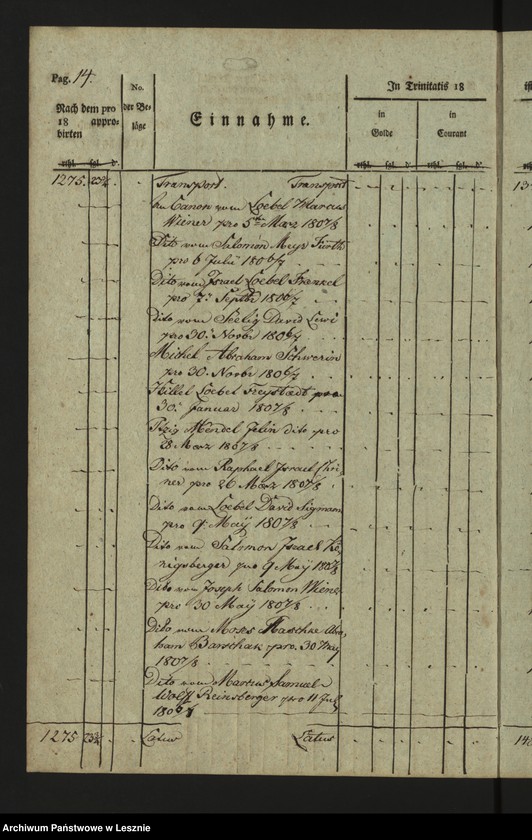 Pag. 14.
Nach dem pro
18 appro-
birten
rthl. sgl. d.
No.
der Be-
läge
Einnahme.
In Trinitatis 18
in
Golde
in
Courant
rthl. sgl. d. rthl. sgl. d.
1275. Transport. Transport
An Canon vom Loebel Marcus
Wiener pro 5 Marz 1807/8
Dito vom Salomon Meyr Fürth
pro 6 Julii 1806/7
Dito vom Israel Loebel Frenkel
pro 7. Septbr 1806/7
Dito vom Seelig David Lewi
pro 30. Novbr 1806/7
Michel Abraham Schwerin
pro 30. Novbr 1806/7
Hillel Loebel Freystadt pro
30. Januar 1807/8
Itzig Mendel Jelin dito pro
28 Marz 1807/8
Dito vom Raphael Israel
pro 26 Marz 1807/8
Dito vom Loebel David Sigman
pro 9 Maÿ 1807/8
Dito vom Salomon Israel Kö-
nigsberger pro 9 Maÿ 1807/8
Dito vom Joseph Salomon Wiener
pro 30 Maÿ 1807/8
Dito vom Moses Maschke Abra-
ham Barschak pro. 30 May
1807/8
Dito vom Marcus Samuel
Wolff Reinsberger pro 11 Jul
1275 Latus Latus
Archiwum Państwowe w Lesznie